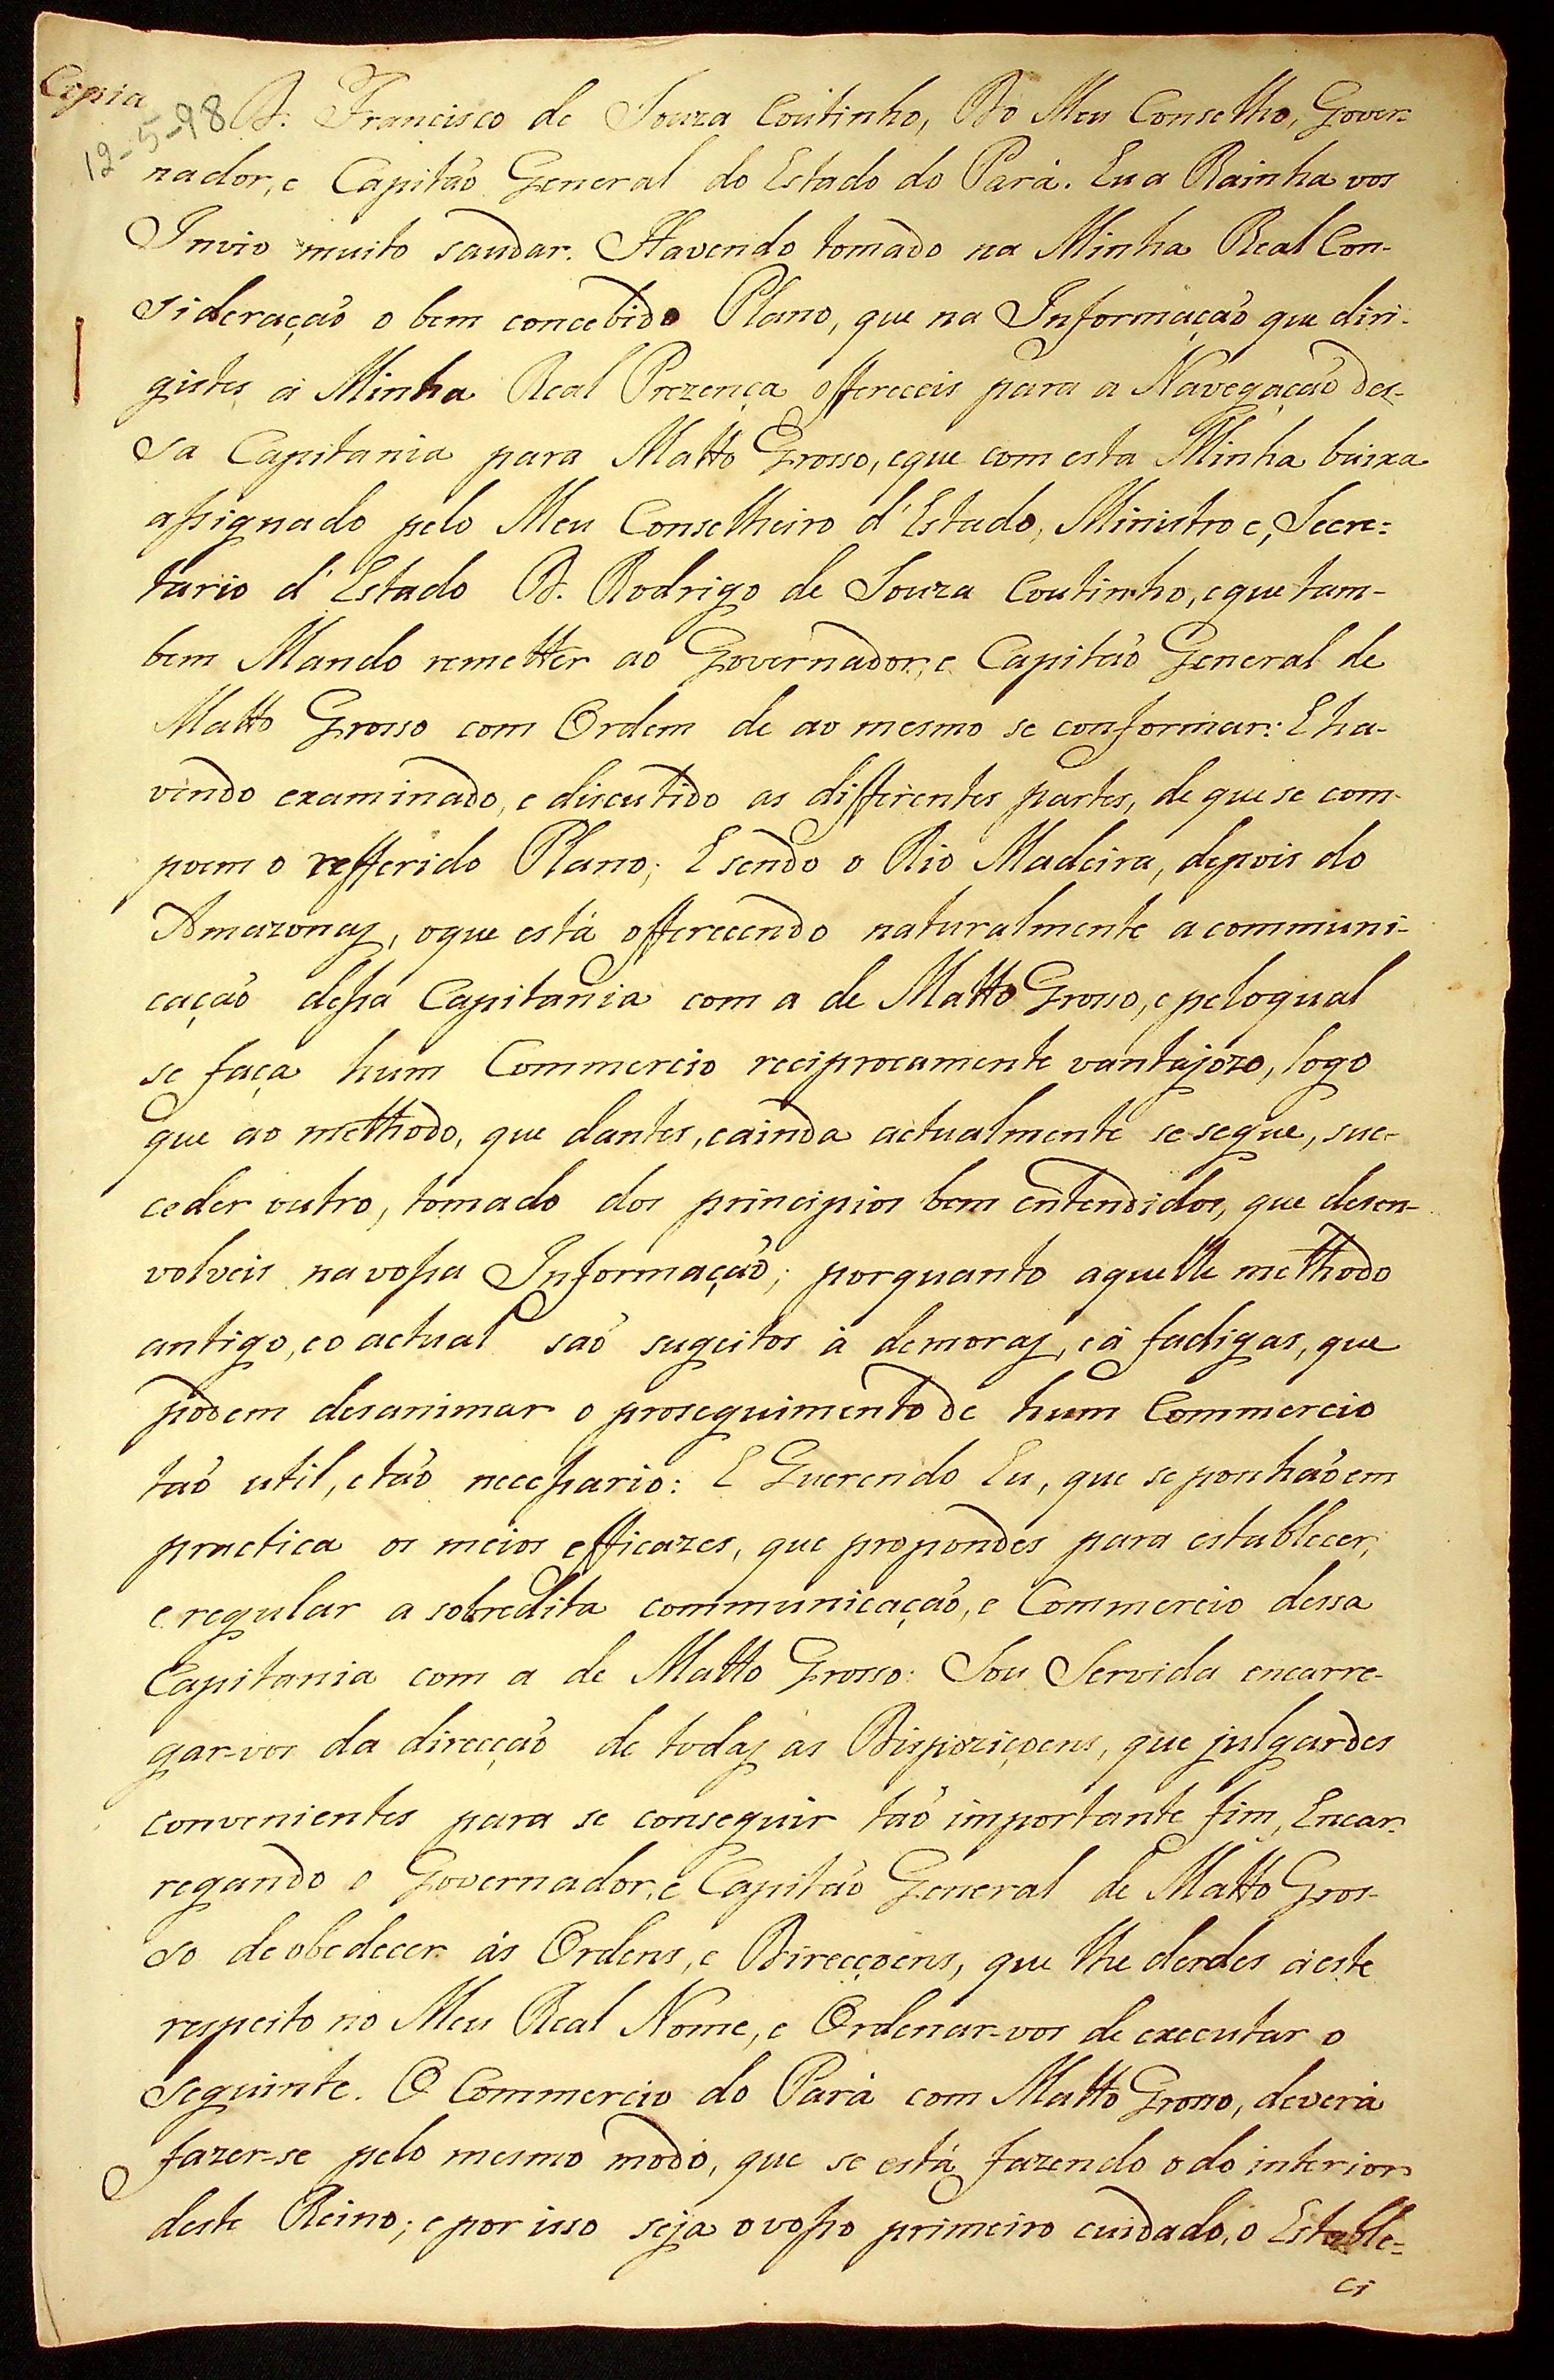 Copia
12-5-98
D. Francisco de Souza Coutinho, Do Meu Conselho, Gover-
nador, e Capitaõ General do Estado do Pará. Eu a Rainha vos
Invio muito saudar. Havendo tomado na Minha Real Con-
sideraçaõ o bem concebido Plano, que na Informaçaõ que diri-
gistes á Minha Real Prezença offereceis para a Navegaçaõ des-
sa Capitania para Matto Grosso, e que com esta Minha baixa
assignado pelo Meu Conselheiro d'Estado, Ministro e, Secre-
tario d'Estado D. Rodrigo de Souza Coutinho, e que tam-
bem Mando remetter ao Governador, e Capitaõ General de
Matto Grosso com Ordem de ao mesmo se conformar: E ha-
vendo examinado, e discutido as differentes partes, de que se com-
poem o refferido Plano; E sendo o Rio Madeira, depois do
Amazonas, o que está offerecendo naturalmente a communi-
caçaõ dessa Capitania com a de Matto Grosso, e pelo qual
se faça hum Commercio reciprocamente vantajozo, logo
que ao methodo, que dantes, e ainda actualmente se segue, suc-
ceder outro, tomado dos principios bem entendidos, que desen-
volveis na vossa Informaçaõ; porquanto aquelle methodo
antigo, e o actual saõ sugeitos á demoras, e á fadigas, que
podem desanimar o proseguimento de hum Commercio
taõ util, e taõ necessario: E Querendo Eu, que se ponhaõ em
practica os meios efficazes, que propondes para establecer,
e regular a sobredita communicaçaõ, e Commercio dessa
Capitania com a de Matto Grosso: Sou Servida encarre-
gar-vos da direcçaõ de todas as Dispoziçoens, que julgardes
convenientes para se conseguir taõ importante fim, Encar-
regando o Governador, e Capitaõ General de Matto Gros-
so de obedecer ás Ordens, e Direcçoens, que lhe derdes á este
respeito no Meu Real Nome, e Ordenar-vos de executar o
seguinte. O Commercio do Pará com Matto Grosso, deverá
fazer-se pelo mesmo modo, que se está fazendo o do interior
deste Reino; e por isso seja o vosso primeiro cuidado, o Estable-
ci